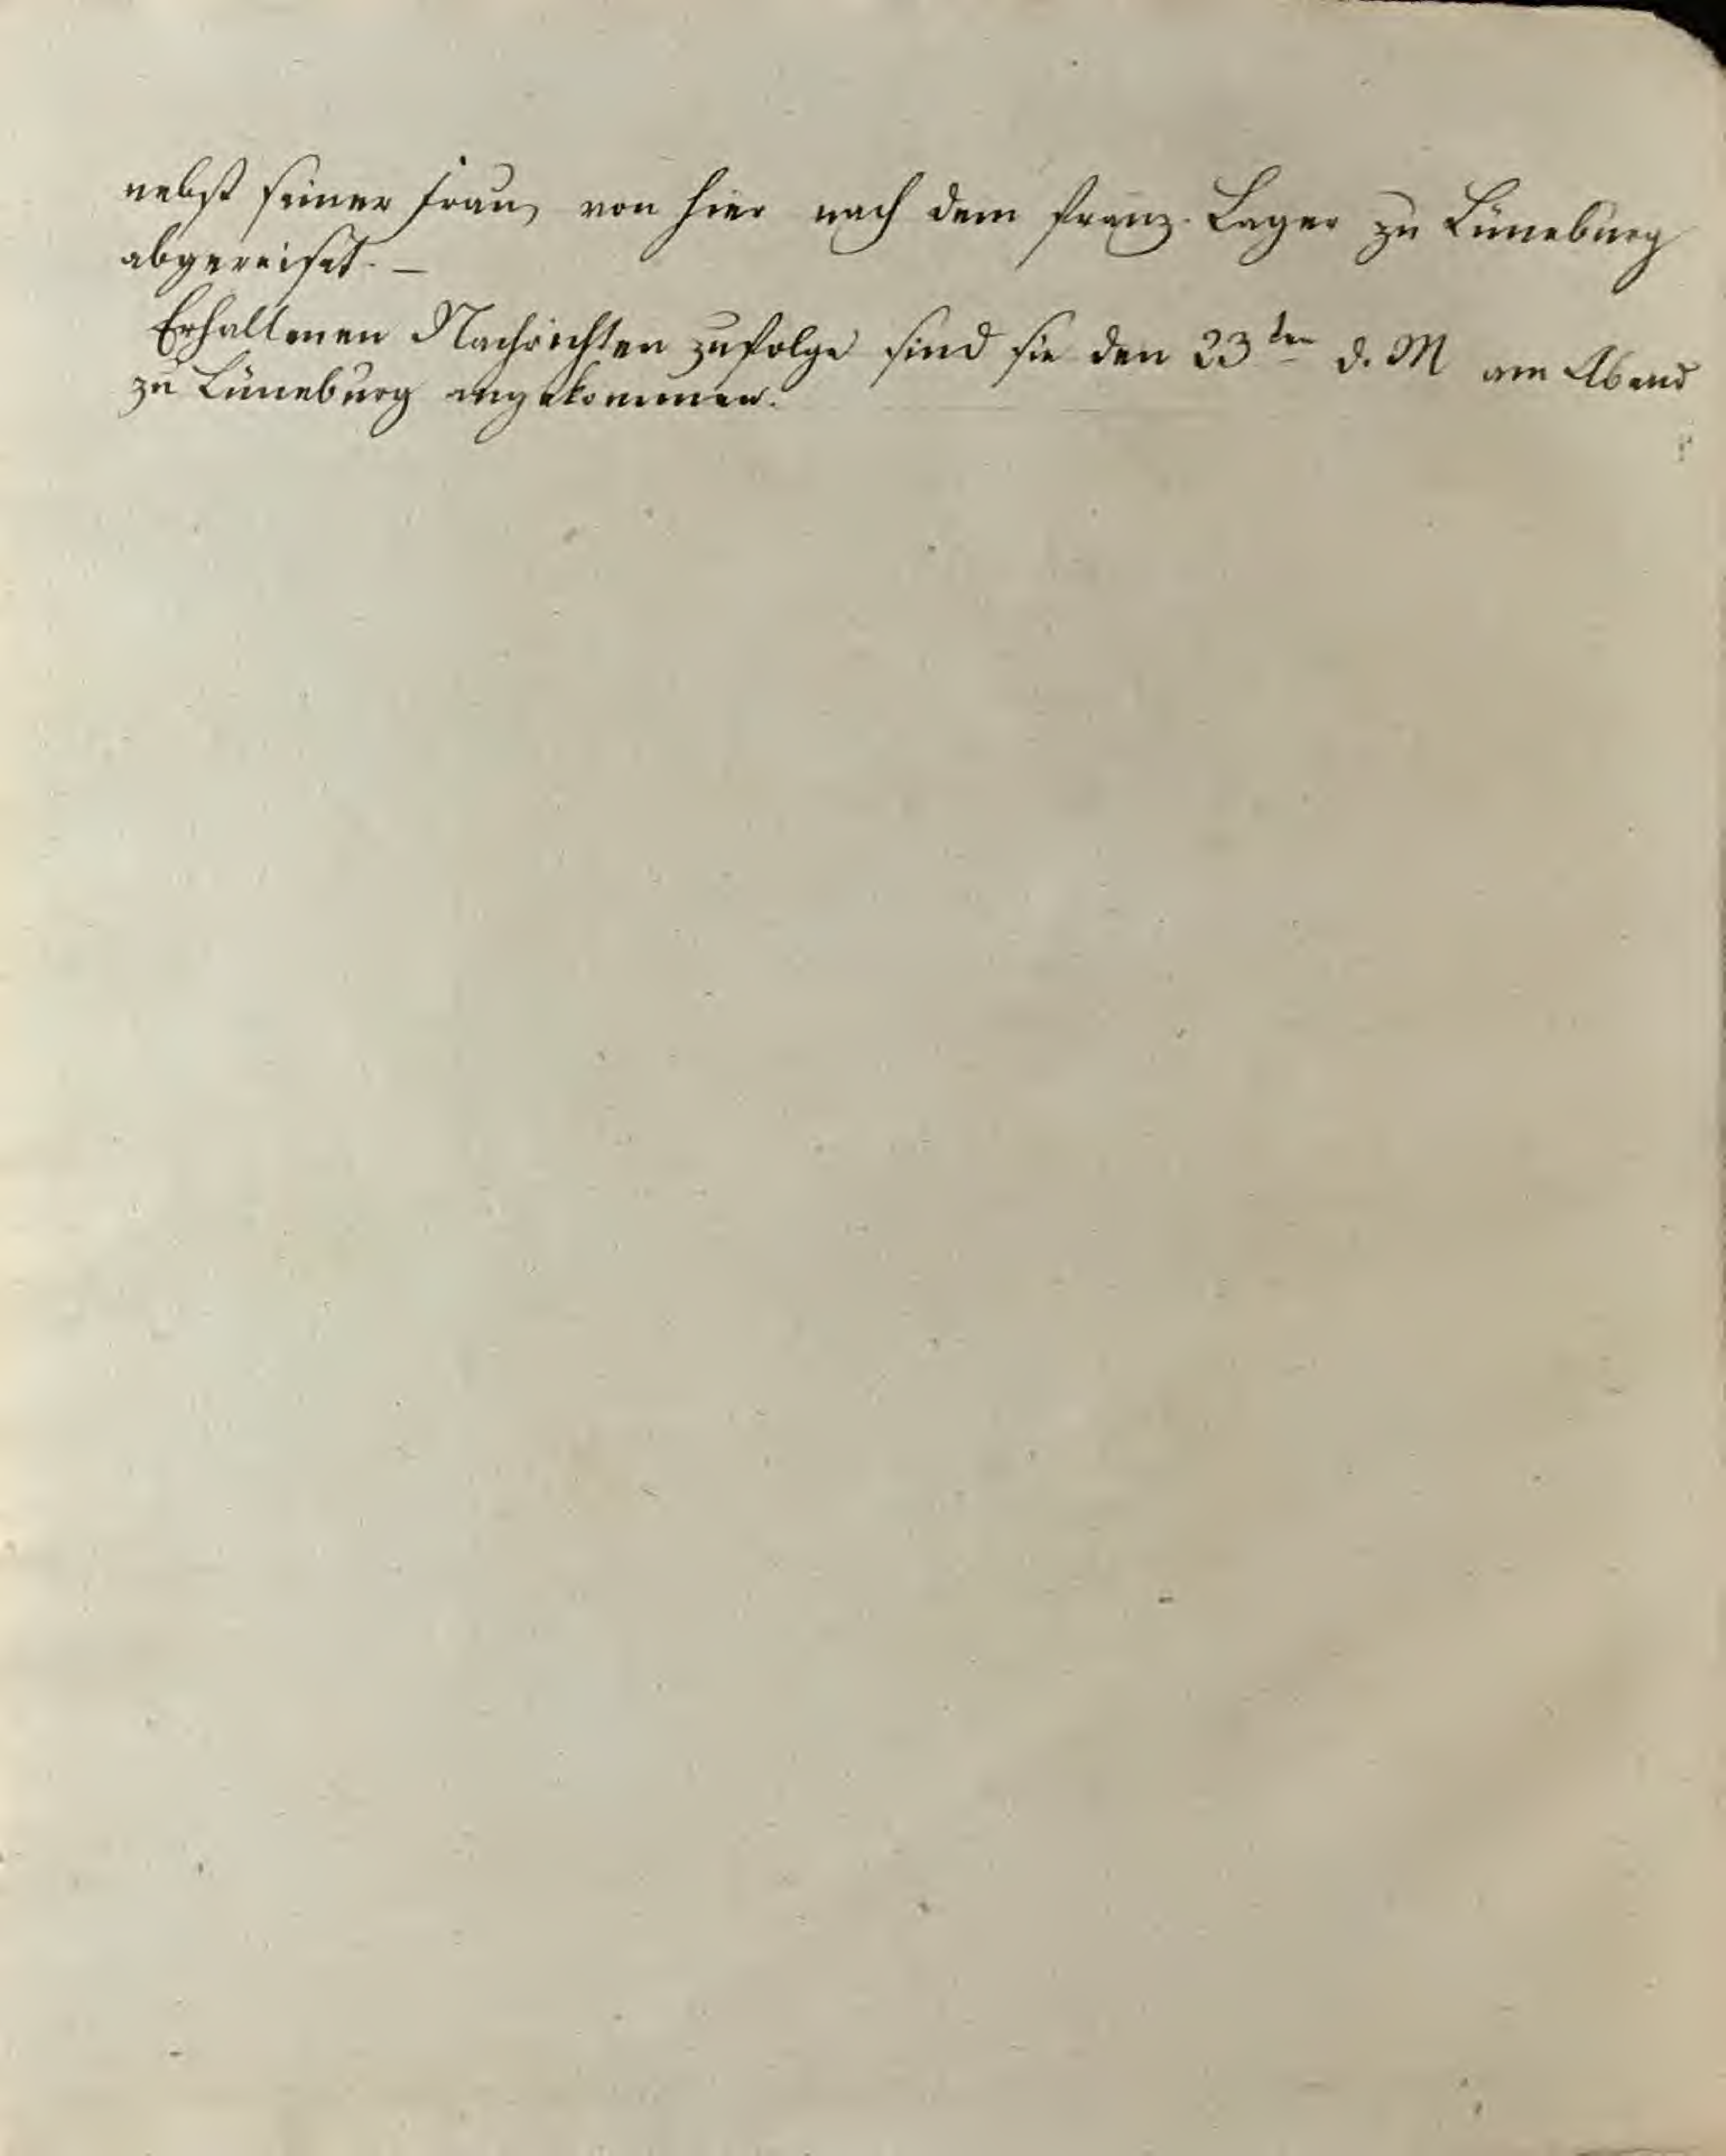 nebst seiner Frau, von hier nach dem franz. Lager zu Lüneburg
abgereiset. –
Erhaltenen Nachrichten zufolge sind sie den 23ten d. M am Abend
zu Lüneburg angekommen.